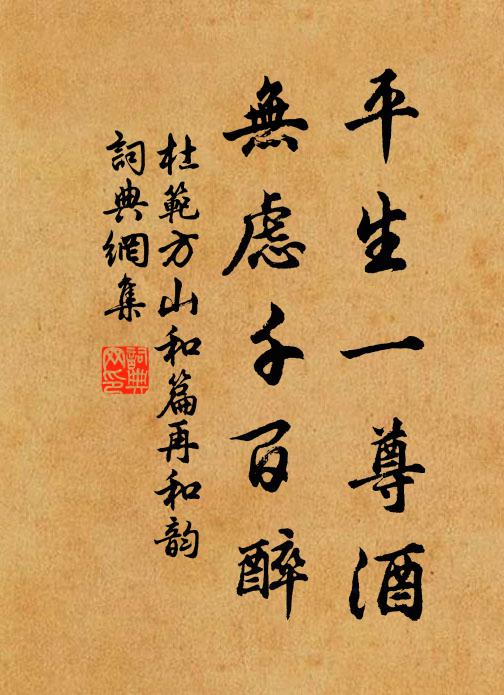 平生一尊酒
無慮千百醉
杜範方山和篇再和韵
詞典網集
詞典
网印